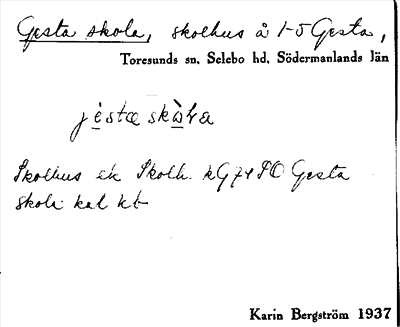 Gesta skola, skolhus å 1-5 Gesta,
Toresunds sn. Selebo hd. Södermanlands län
jèstæ skòla
Skolhus ek Skolh. kG74 PO Gesta
skola kal kb
Karin Bergström 1937